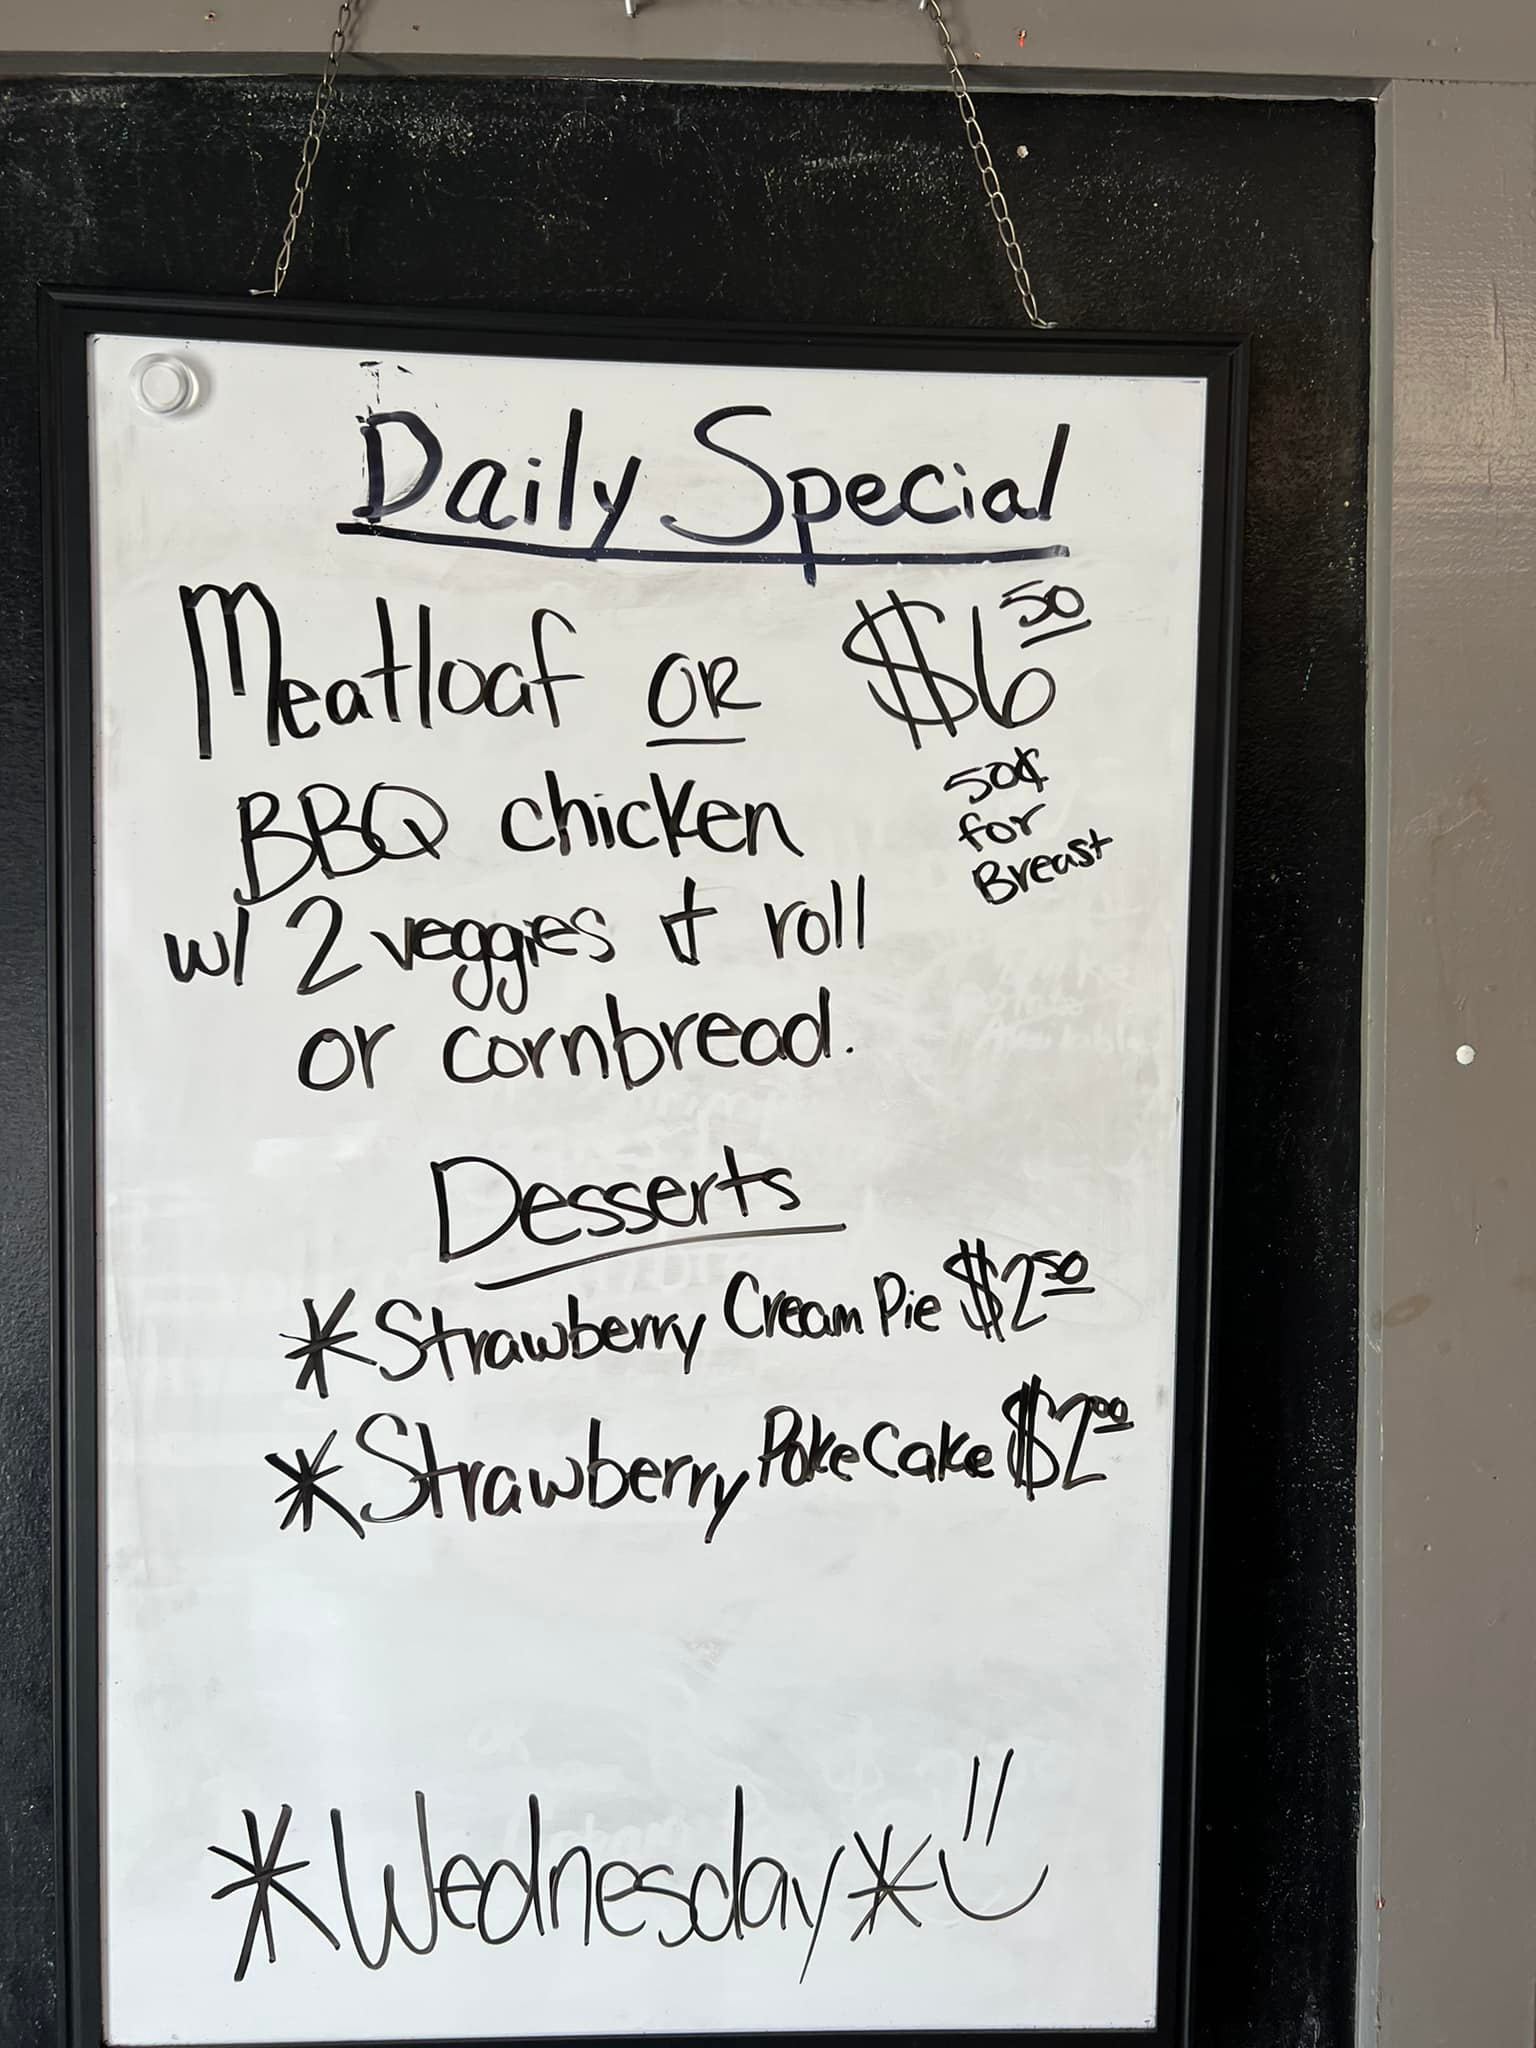 Daily Special
Meatloaf OR $6.50
BBQ chicken
50¢
for
Breast
w/ 2 veggies & roll
or cornbread.
Desserts
*Strawberry Cream Pie $2.50
*Strawberry Poke Cake $2.00
*Wednesday*